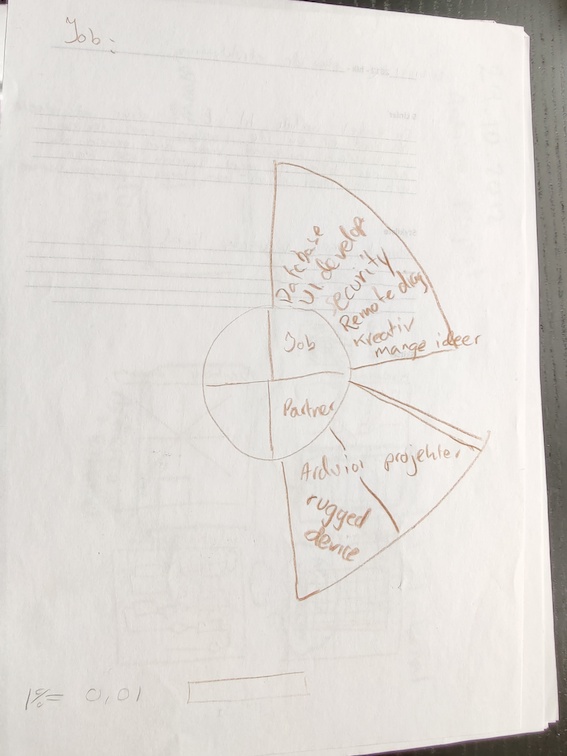 Job:
Database
UI develop
security
Remote diag
Kreativ
mange ideer
Job
Partner
projekter
rugged
device
1% = 0,01